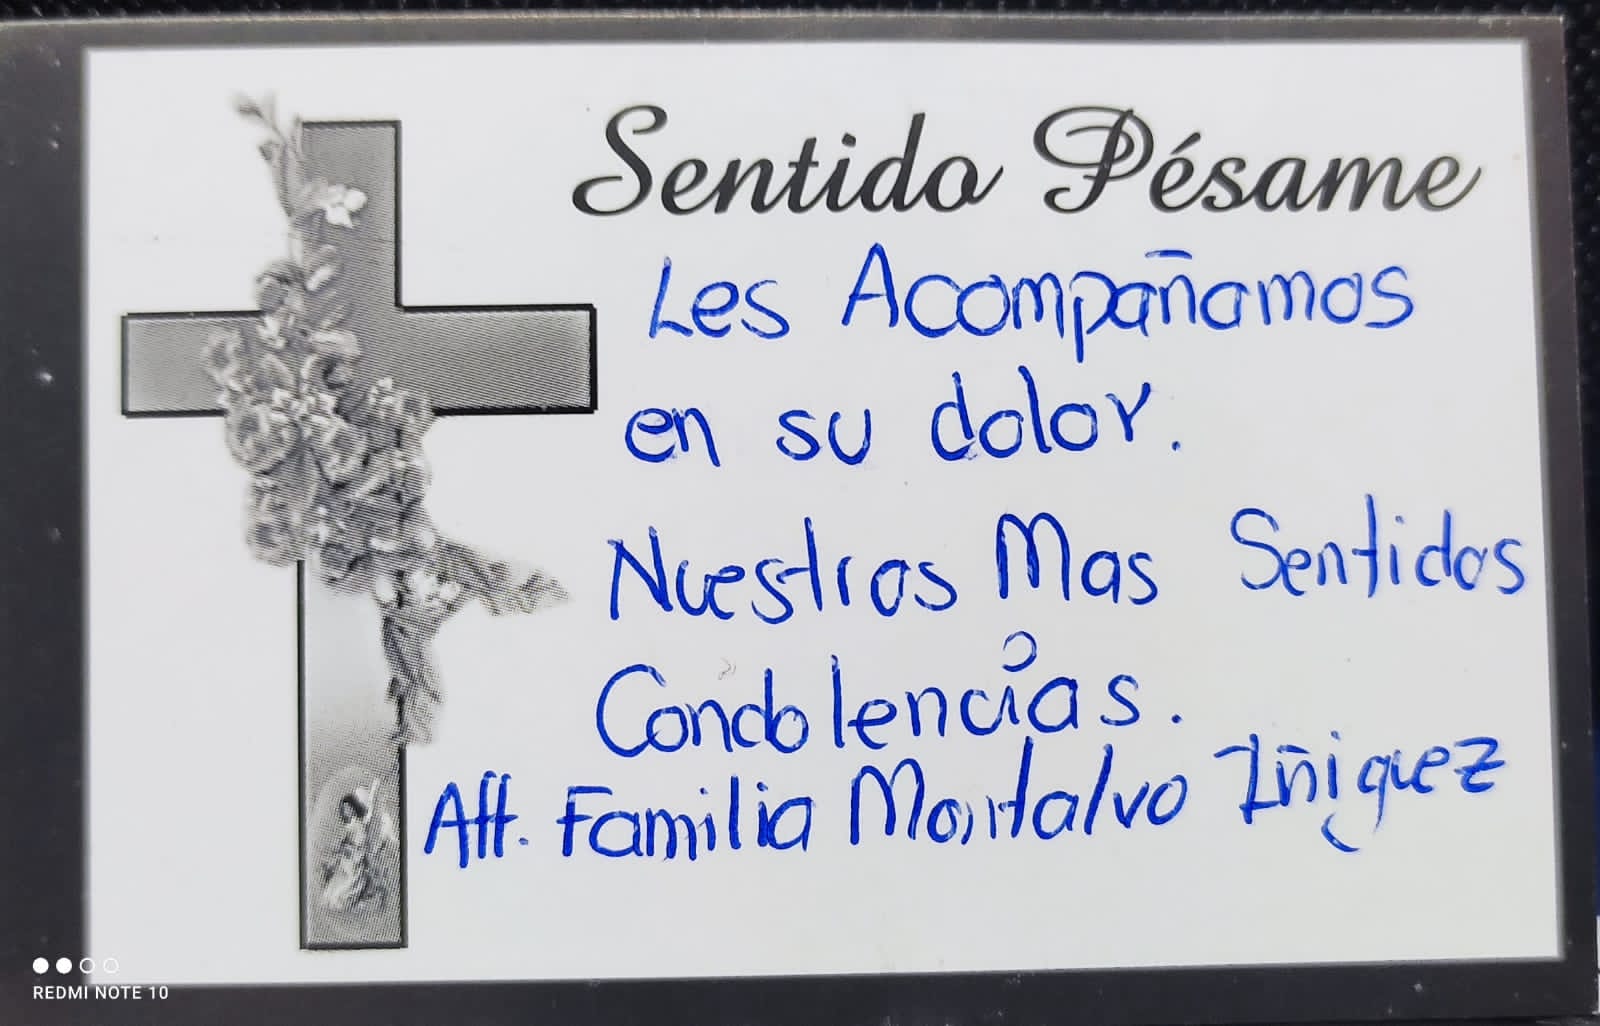 Sentido Pésame
Les Acompañamos
en su dolor.
Nuestras Mas Sentidas
Condolencias.
Att. Familia Montalvo Iñiguez
REDMI NOTE 10